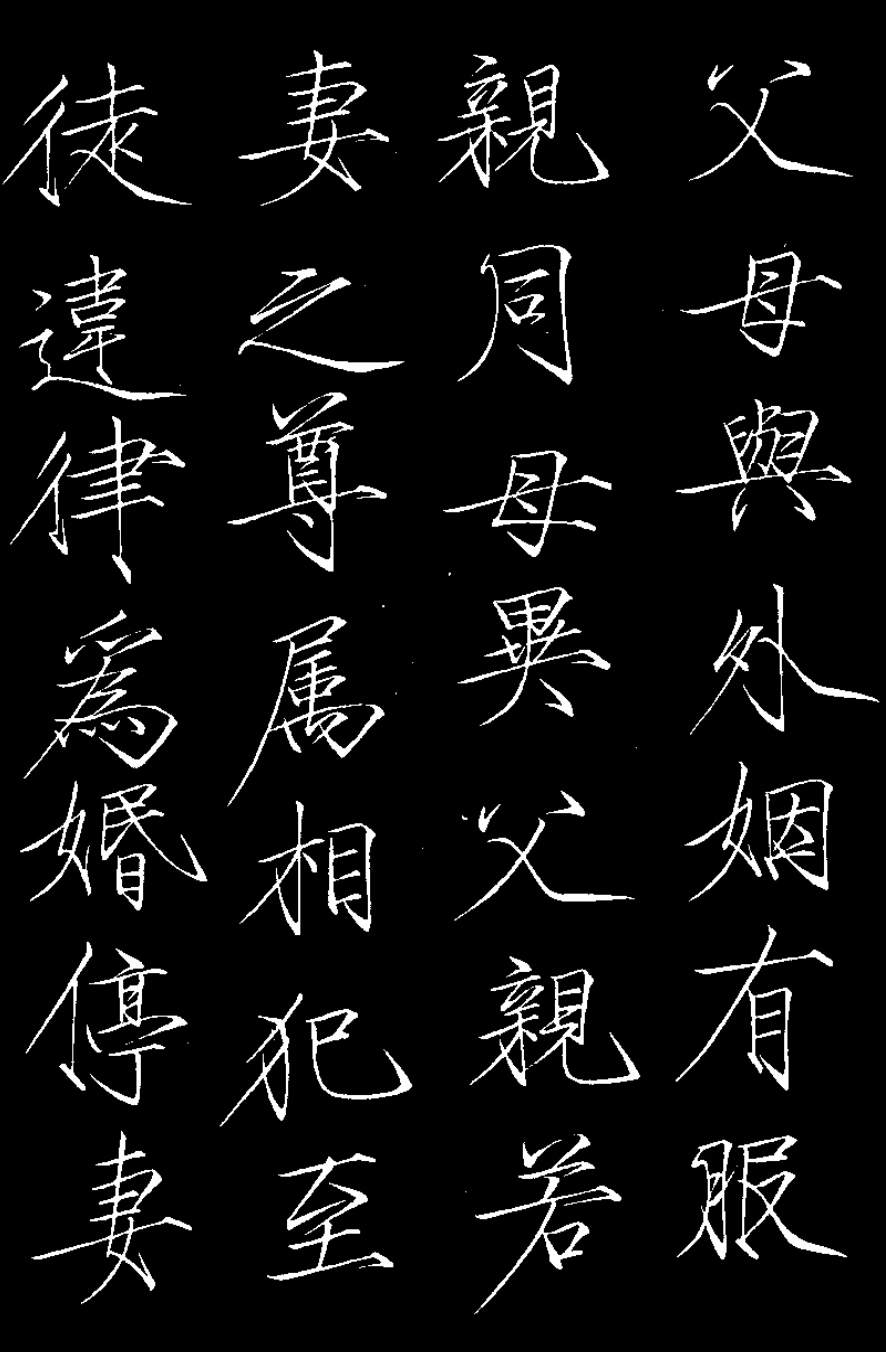 父母與外姻有服
親同母異父親若
妻之尊属相犯至
徒違律爲婚停妻